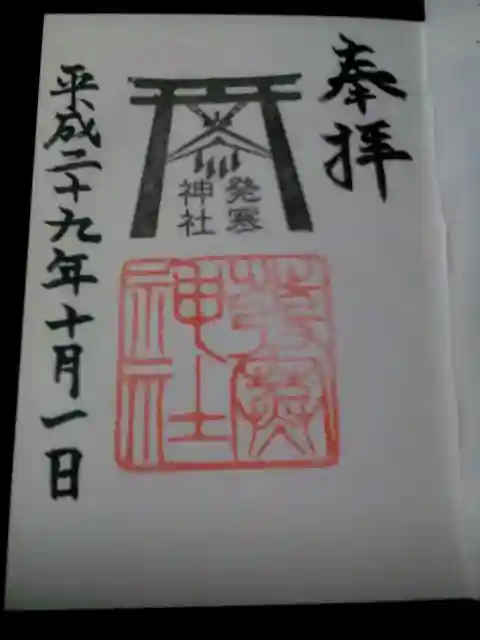 奉拝
発寒
神社
發寒
神社
平成二十九年十月一日